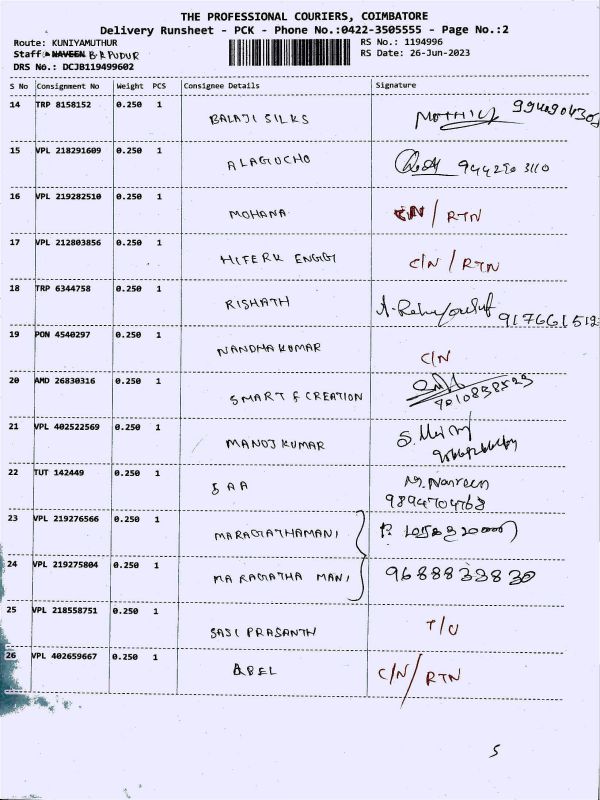 THE PROFESSIONAL COURIERS, COIMBATORE
Delivery Runsheet - PCK - Phone No.:0422-3505555 - Page No.:2
Route: KUNIYAMUTHUR RS No.: 1194996
Staff: NAVEEN B K PUDUR RS Date: 26-Jun-2023
DRS No.: DCJB119499602
S No Consignment No Weight PCS Consignee Details Signature
14 TRP 8158152 0.250 1 BALAJI SILKS
15 VPL 218291609 0.250 1 ALAGUCHO
16 VPL 219282510 0.250 1 MOHANA C/N / RTN
17 VPL 212803856 0.250 1 HIFERK ENGGI C/N / RTN
18 TRP 6344758 0.250 1 RISHATH 917661512
19 PON 4540297 0.250 1 NANDHAKUMAR C/N
20 AMD 26830316 0.250 1 SMART & CREATION
21 VPL 402522569 0.250 1 MANOJ KUMAR
22 TUT 142449 0.250 1 SAA M. Nasreen
9894704768
23 VPL 219276566 0.250 1 MARAGATHAMANI
24 VPL 219275804 0.250 1 MARAGATHA MANI 9688833830
25 VPL 218558751 0.250 1 SASI PRASANTH T/U
26 VPL 402659667 0.250 1 ABEL C/N / RTN
5